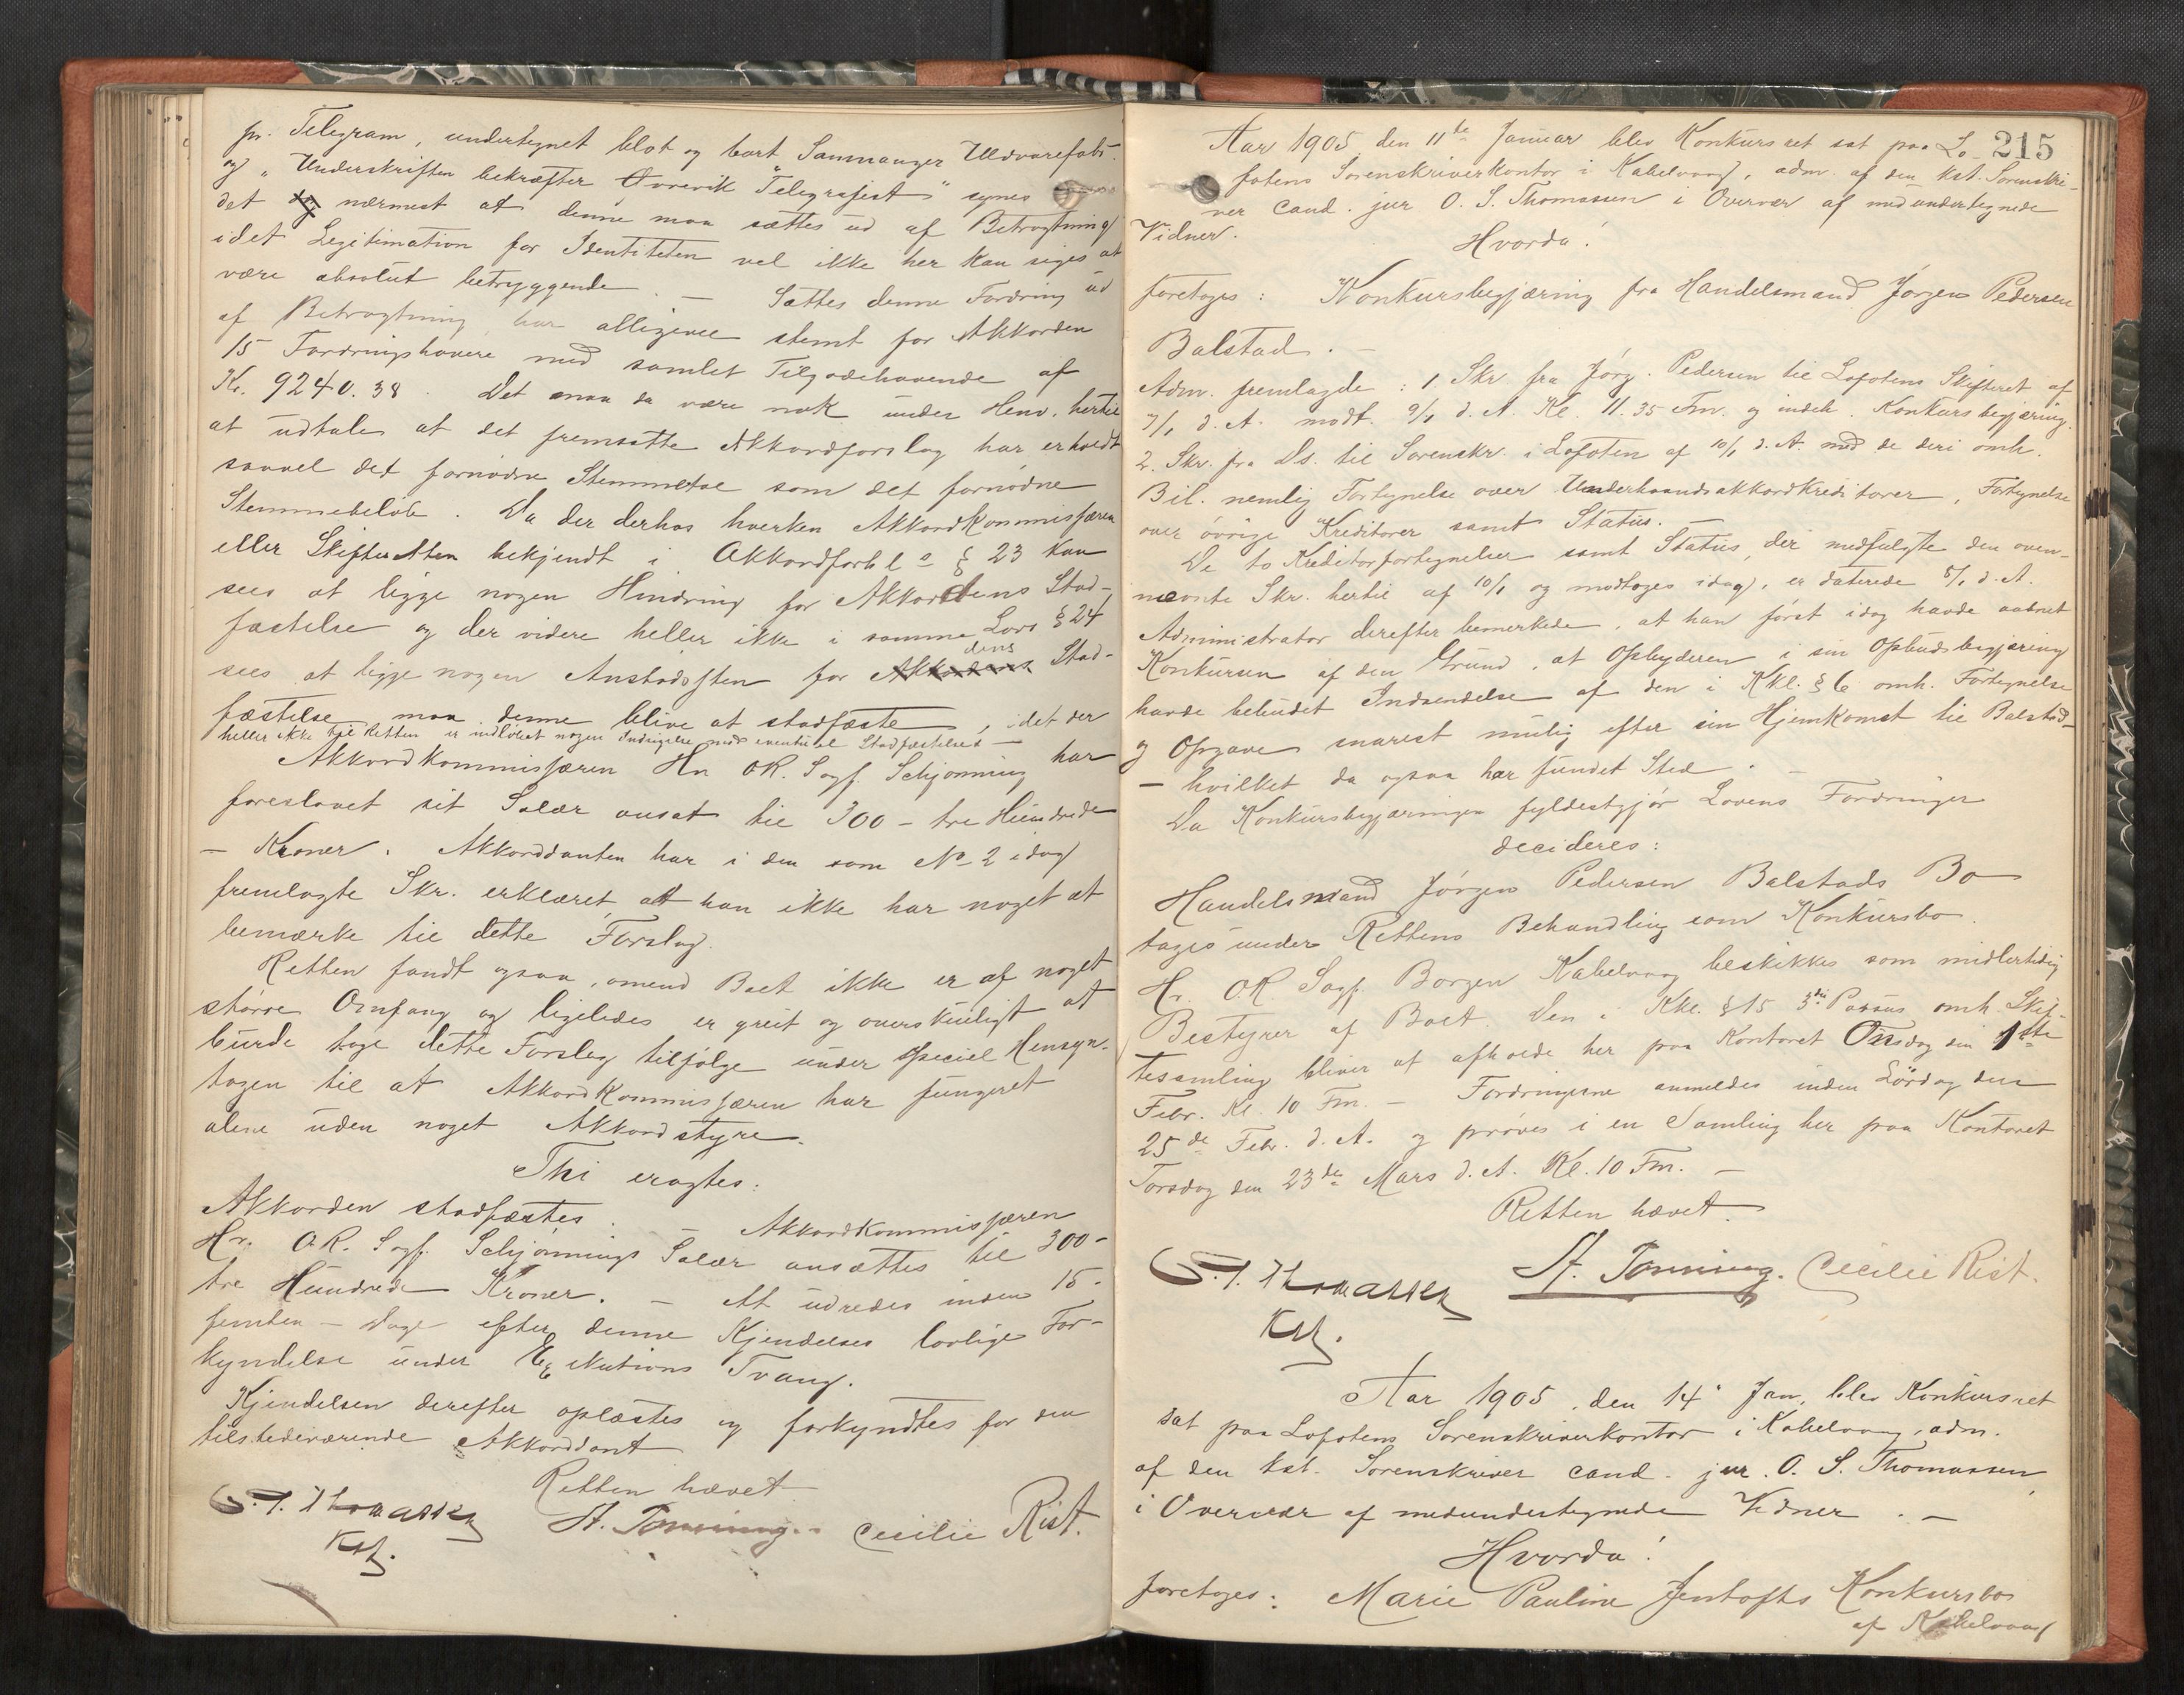 pr. Telegram, undertegnet blot og bart Samnanger Uldvarefabr.
og "Underskriften bekræfter Övrevik Telegrafist" synes
det nærmest at denne maa sættes ud af Betragtning
idet Legitimation for Identiteten vel ikke her kan siges at
være absolut betryggende. — Sættes denne Fordring ud
af Betragtning, har alligevel stemt for Akkorden
15 Fordringshavere med samlet Tilgodehavende af
Kr. 9240.38. Det maa da være nok under Henv. hertil
at udtale at det fremsatte Akkordforslag har erholdt
saavel det fornödne Stemmetal som det fornödne
Stemmebelöb. Da der derhos hverken Akkordkommissæren
eller Skifteretten bekjendt i Akkordforhl. § 23 kan
sees at ligge nogen Hindring for Akkordens Stad-
fæstelse og der videre heller ikke i samme Lovs § 24
sees at ligge nogen Anstödssten for dens Stad-
fæstelse maa denne blive at stadfæste, idet der
heller ikke til Retten er indlöbet nogen Indsigelse mod eventuel Stadfæstelse —
Akkordkommissæren Hr. OR. Sagf. Schjönning har
foreslaaet sit Salær ansat til 300 - tre Hundrede
- Kroner. Akkordanten har i den som No 2 idag
fremlagte Skr. erklæret, at han ikke har noget at
bemærke til dette Forslag.
Retten fandt ogsaa, omend Boet ikke er af noget
större Omfang og ligeledes er greit og overskueligt at
burde tage dette Forslag tilfölge under speciel Hensyn-
tagen til at Akkordkommissæren har fungeret
alene uden noget Akkordstyre.
Thi eragtes:
Akkorden stadfæstes. — Akkordkommissæren
Hr. O.R. Sagf. Schjönnings Salær ansættes til 300 -
tre Hundrede Kroner. — At udredes inden 15 -
femten - Dage efter denne Kjendelses lovlige For-
kyndelse under Exekutions Tvang.
Kjendelsen derefter oplæstes og forkyndtes for den
tilstedeværende Akkordant
Retten hævet
O. S. Thomassen St. Tonning. Cecilie Rist.
Kst.
215
Aar 1905 den 11te Januar blev Konkursret sat paa Lo-
fotens Sorenskriverkontor i Kabelvaag, adm. af den kst. Sorenskri-
ver cand. jur O. S. Thomassen i Overvær af medundertegnede
Vidner.
Hvorda!
foretoges: Konkursbegjæring fra Handelsmand Jörgen Pedersen
Balstad. —
Adm. fremlagde: 1 Skr fra Jörg. Pedersen til Lofotens Skifteret af
7/1 d. A. modt. 9/1 d. A. Kl. 11.35 Fm. og indeh. Konkursbegjæring.
2. Skr. fra Ds. til Sorenskr. i Lofoten af 10/1 d. A. med de deri omh.
Bil. nemlig Fortegnelse over Underhaandsakkordkreditorer, Fortegnelse
over övrige Kreditorer samt Status. —
De to Kreditorfortegnelser samt Status, der medfulgte den oven-
nævnte Skr. hertil af 10/1 og modtoges idag, er daterede 8/1 d. A.
Administrator derefter bemerkede, at han först idag havde aabnet
Konkursen af den Grund, at Opbyderen i sin Opbudsbegjæring
havde bebudet Indsendelse af den i Kkl. § 6 omh. Fortegnelse
og Opgave snarest mulig efter sin Hjemkomst til Balstad
- hvilket da ogsaa har fundet Sted. —
Da Konkursbegjæringen fyldestgjör Lovens Fordringer
decideres:
Handelsmand Jörgen Pedersen Balstads Bo
tages under Rettens Behandling som Konkursbo.
Hr. O.R. Sagf. Borgen Kabelvaag beskikkes som midlertidig
Bestyrer af Boet. Den i Kkl. § 15 3die Passus omh. Skif-
tesamling bliver at afholde her paa Kontoret Onsdag den 1ste
Febr. Kl. 10 Fm. — Fordringerne anmeldes inden Lördag den
25de Febr. d. A. og pröves i en Samling her paa Kontoret
Torsdag den 23de Mars d. A. Kl. 10 Fm. —
Retten hævet.
O. S. Thomassen St. Tonning. Cecilie Rist.
Kst.
Aar 1905, den 14. Jan, blev Konkursret
sat paa Lofotens Sorenskriverkontor i Kabelvaag, adm.
af den kst. Sorenskriver cand. jur. O. S. Thomassen
i Overvær af medundertegnede Vidner. —
Hvorda!
foretoges: Marie Pauline Jentofts Konkursbo
af Kabelvaag